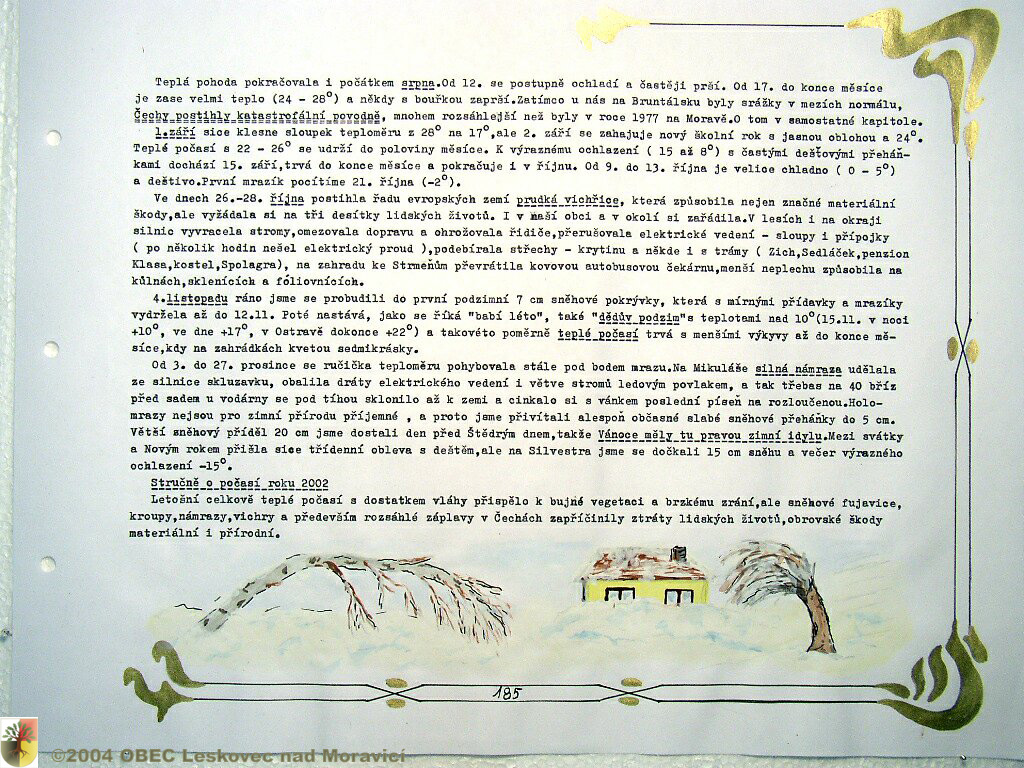 Teplá pohoda pokračovala i počátkem srpna.Od 12. se postupně ochladí a častěji prší. Od 17. do konce měsíce
je zase velmi teplo (24 - 28°) a někdy s bouřkou zaprší.Zatímco u nás na Bruntálsku byly srážky v mezích normálu,
Čechy postihly katastrofální povodně, mnohem rozsáhlejší než byly v roce 1977 na Moravě.O tom v samostatné kapitole.
1.září sice klesne sloupek teploměru z 28° na 17°,ale 2. září se zahajuje nový školní rok s jasnou oblohou a 24°.
Teplé počasí s 22 - 26° se udrží do poloviny měsíce. K výraznému ochlazení ( 15 až 8°) s častými dešťovými přeháň-
kami dochází 15. září,trvá do konce měsíce a pokračuje i v říjnu. Od 9. do 13. října je velice chladno ( 0 - 5°)
a deštivo.První mrazík pocítíme 21. října (-2°).
Ve dnech 26.-28. října postihla řadu evropských zemí prudká vichřice, která způsobila nejen značné materiální
škody,ale vyžádala si na tři desítky lidských životů. I v naší obci a v okolí si zařádila.V lesích i na okraji
silnic vyvracela stromy,omezovala dopravu a ohrožovala řidiče,přerušovala elektrické vedení - sloupy i přípojky
( po několik hodin nešel elektrický proud ),podebírala střechy - krytinu a někde i s trámy ( Zich,Sedláček,penzion
Klasa,kostel,Spolagra), na zahradu ke Strmeňům převrátila kovovou autobusovou čekárnu,menší neplechu způsobila na
kůlnách,sklenících a fóliovnících.
4.listopadu ráno jsme se probudili do první podzimní 7 cm sněhové pokrývky, která s mírnými přídavky a mrazíky
vydržela až do 12.11. Poté nastává, jako se říká "babí léto", také "dědův podzim"s teplotami nad 10°(15.11. v noci
+10°, ve dne +17°, v Ostravě dokonce +22°) a takovéto poměrně teplé počasí trvá s menšími výkyvy až do konce mě-
síce,kdy na zahrádkách kvetou sedmikrásky.
Od 3. do 27. prosince se ručička teploměru pohybovala stále pod bodem mrazu.Na Mikuláše silná námraza udělala
ze silnice skluzavku, obalila dráty elektrického vedení i větve stromů ledovým povlakem, a tak třebas na 40 bříz
před sadem u vodárny se pod tíhou sklonilo až k zemi a cinkalo si s vánkem poslední píseň na rozloučenou.Holo-
mrazy nejsou pro zimní přírodu příjemné , a proto jsme přivítali alespoň občasné slabé sněhové přeháňky do 5 cm.
Větší sněhový příděl 20 cm jsme dostali den před Štědrým dnem,takže Vánoce měly tu pravou zimní idylu.Mezi svátky
a Novým rokem přišla sice třídenní obleva s deštěm,ale na Silvestra jsme se dočkali 15 cm sněhu a večer výrazného
ochlazení -15°.
Stručně o počasí roku 2002
Letošní celkově teplé počasí s dostatkem vláhy přispělo k bujné vegetaci a brzkému zrání,ale sněhové fujavice,
kroupy,námrazy,vichry a především rozsáhlé záplavy v Čechách zapříčinily ztráty lidských životů,obrovské škody
materiální i přírodní.
185
©2004 OBEC Leskovec nad Moravicí